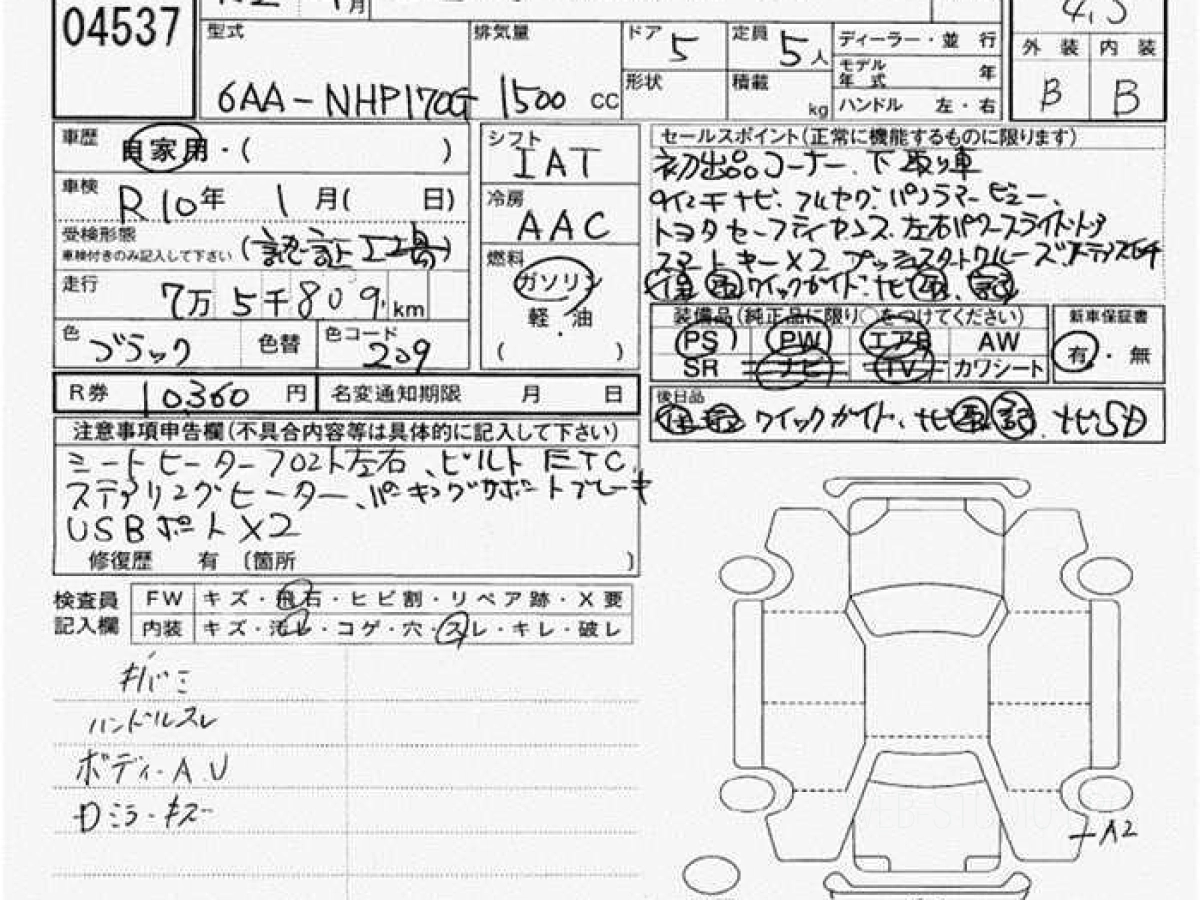 04537
月
型式
6AA-NHP170G
排気量
1500 cc
ドア 5
形状
定員 5人
積載 kg
ディーラー・並 行
モデル年式 年
ハンドル 左・右
4.5
外 装 内 装
B B
車歴 自家用・( )
車検 R10年 1月( 日)
受検形態 車検付きのみ記入して下さい (認証工場)
走行 7万5千809km
色 ブラック 色替 色コード 209
シフト IAT
冷房 AAC
燃料 ガソリン
軽・油
( )
セールスポイント(正常に機能するものに限ります)
初出品コーナー、下取り車
9インチナビ、フルセグ、パノラマービュー、
トヨタセーフティセンス、左右パワースライドドア
スマートキーX2 プッシュスタート
保 取 クイックガイド、ナビ取、記
装備品(純正品に限り○をつけてください)
PS PW エアB AW
SR ナビ TV カワシート
新車保証書
有・無
R券 10,360 円 名変通知期限 月 日
後日品
保 取 クイックガイド、ナビ取 記、ナビSD
注意事項申告欄(不具合内容等は具体的に記入して下さい)
シートヒーターフロント左右、ビルトETC、
ステアリングヒーター、パーキングサポートブレーキ
USBポートX2
修復歴 有 〔箇所 〕
検査員記入欄
FW キズ・飛石・ヒビ割・リペア跡・X要
内装 キズ・汚レ・コゲ・穴・スレ・キレ・破レ
キバミ
ハンドルスレ
ボディ・AU
Dミラーキズ
A2